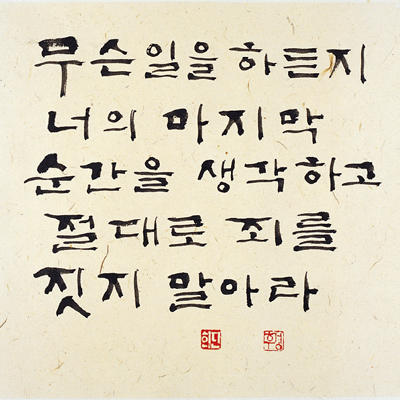 무슨일을 하든지
너의 마지막
순간을 생각하고
절대로 죄를
짓지 말아라